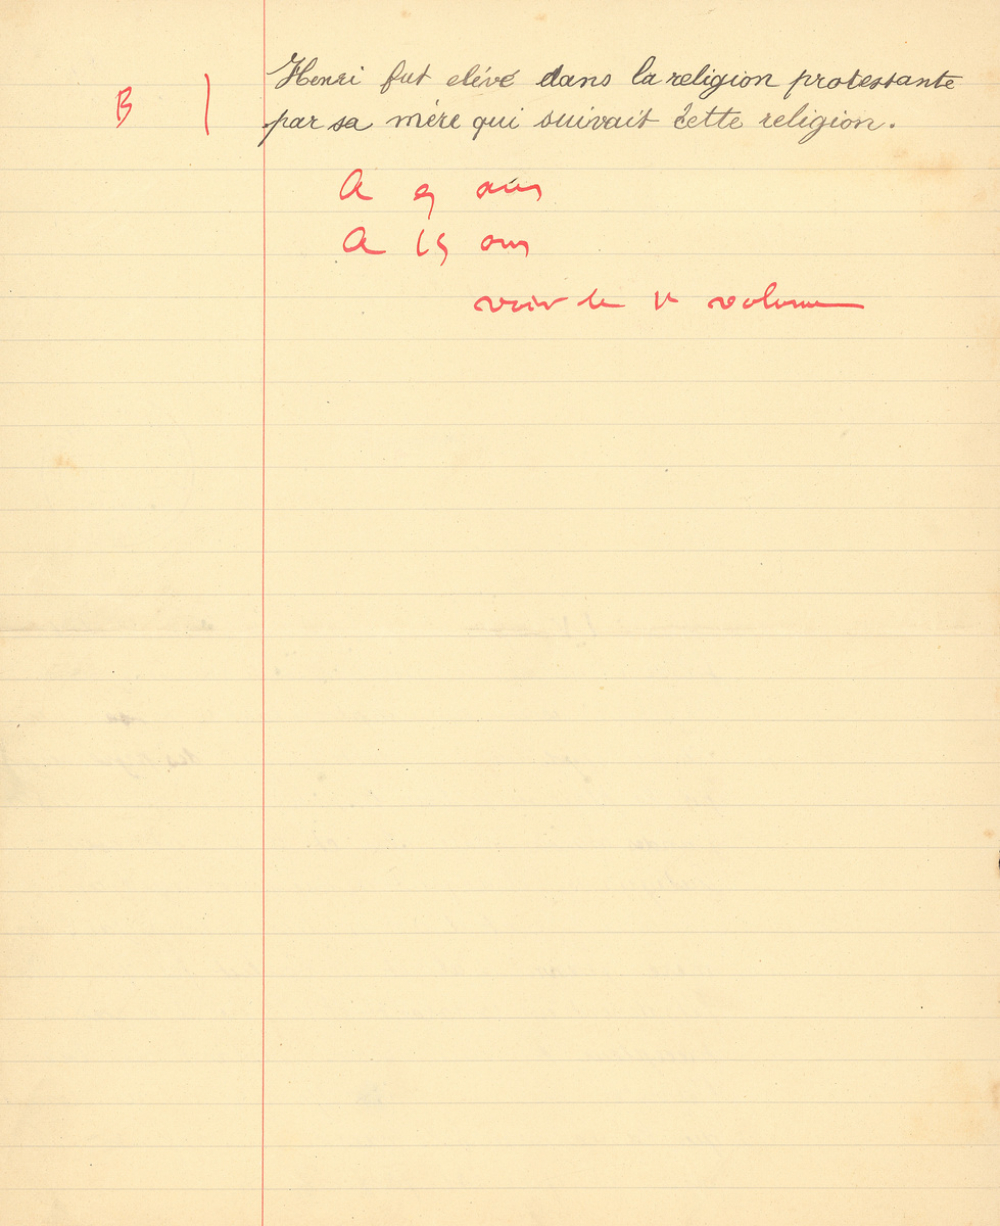 B | Henri fut elévé dans la religion protestante
par sa mére qui suivait cette religion.
A 9 ans
A 15 ans
voir le 1r volume